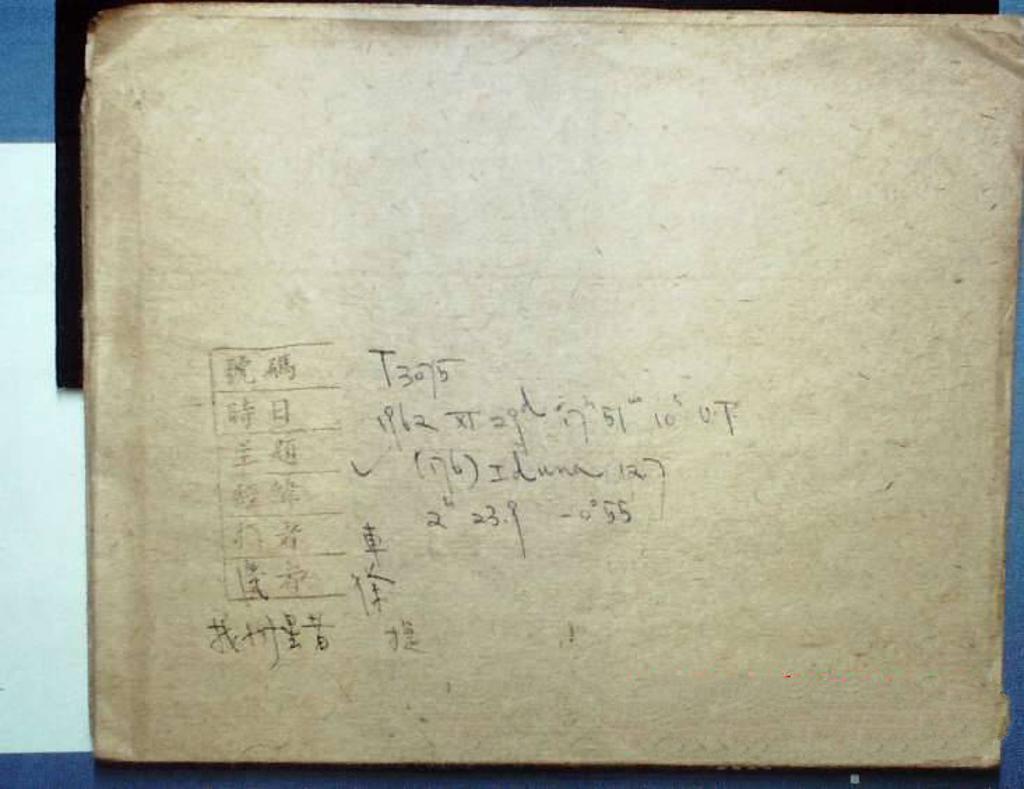 號碼 T3075
時日 1962 XI 29d 17h 51m 10s U.T
主題 ✓ (176) Iduna 12.7
經緯 2h 23.9 -0°55'
車
徐
找小星者